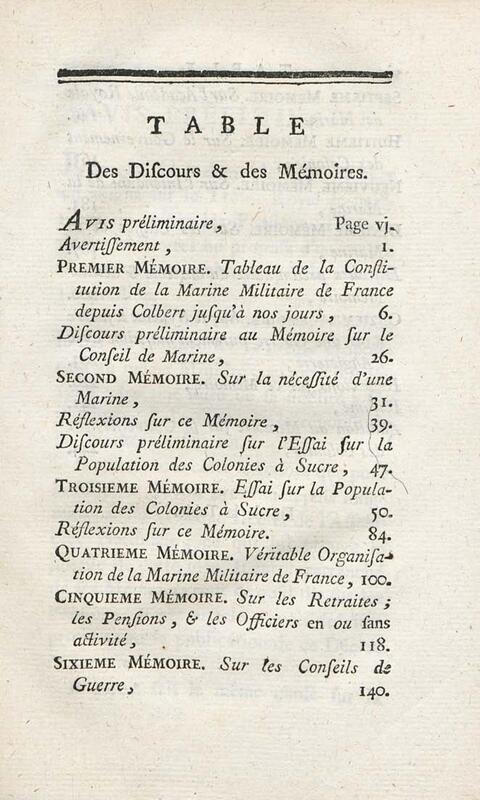 TABLE
Des Diſcours & des Mémoires.
AVIS préliminaire, Page vj.
Avertiſſement, 1.
PREMIER MÉMOIRE. Tableau de la Conſti-
tution de la Marine Militaire de France
depuis Colbert juſqu'à nos jours, 6.
Diſcours préliminaire au Mémoire ſur le
Conſeil de Marine, 26.
SECOND MÉMOIRE. Sur la néceſſité d'une
Marine, 31.
Réflexions ſur ce Mémoire, 39.
Diſcours préliminaire ſur l'Eſſai ſur la
Population des Colonies à Sucre, 47.
TROISIEME MÉMOIRE. Eſſai ſur la Popula-
tion des Colonies à Sucre, 50.
Réflexions ſur ce Mémoire. 84.
QUATRIEME MÉMOIRE. Véritable Organiſa-
tion de la Marine Militaire de France, 100.
CINQUIEME MÉMOIRE. Sur les Retraites;
les Penſions, & les Officiers en ou ſans
activité, 118.
SIXIEME MÉMOIRE. Sur les Conſeils de
Guerre, 140.